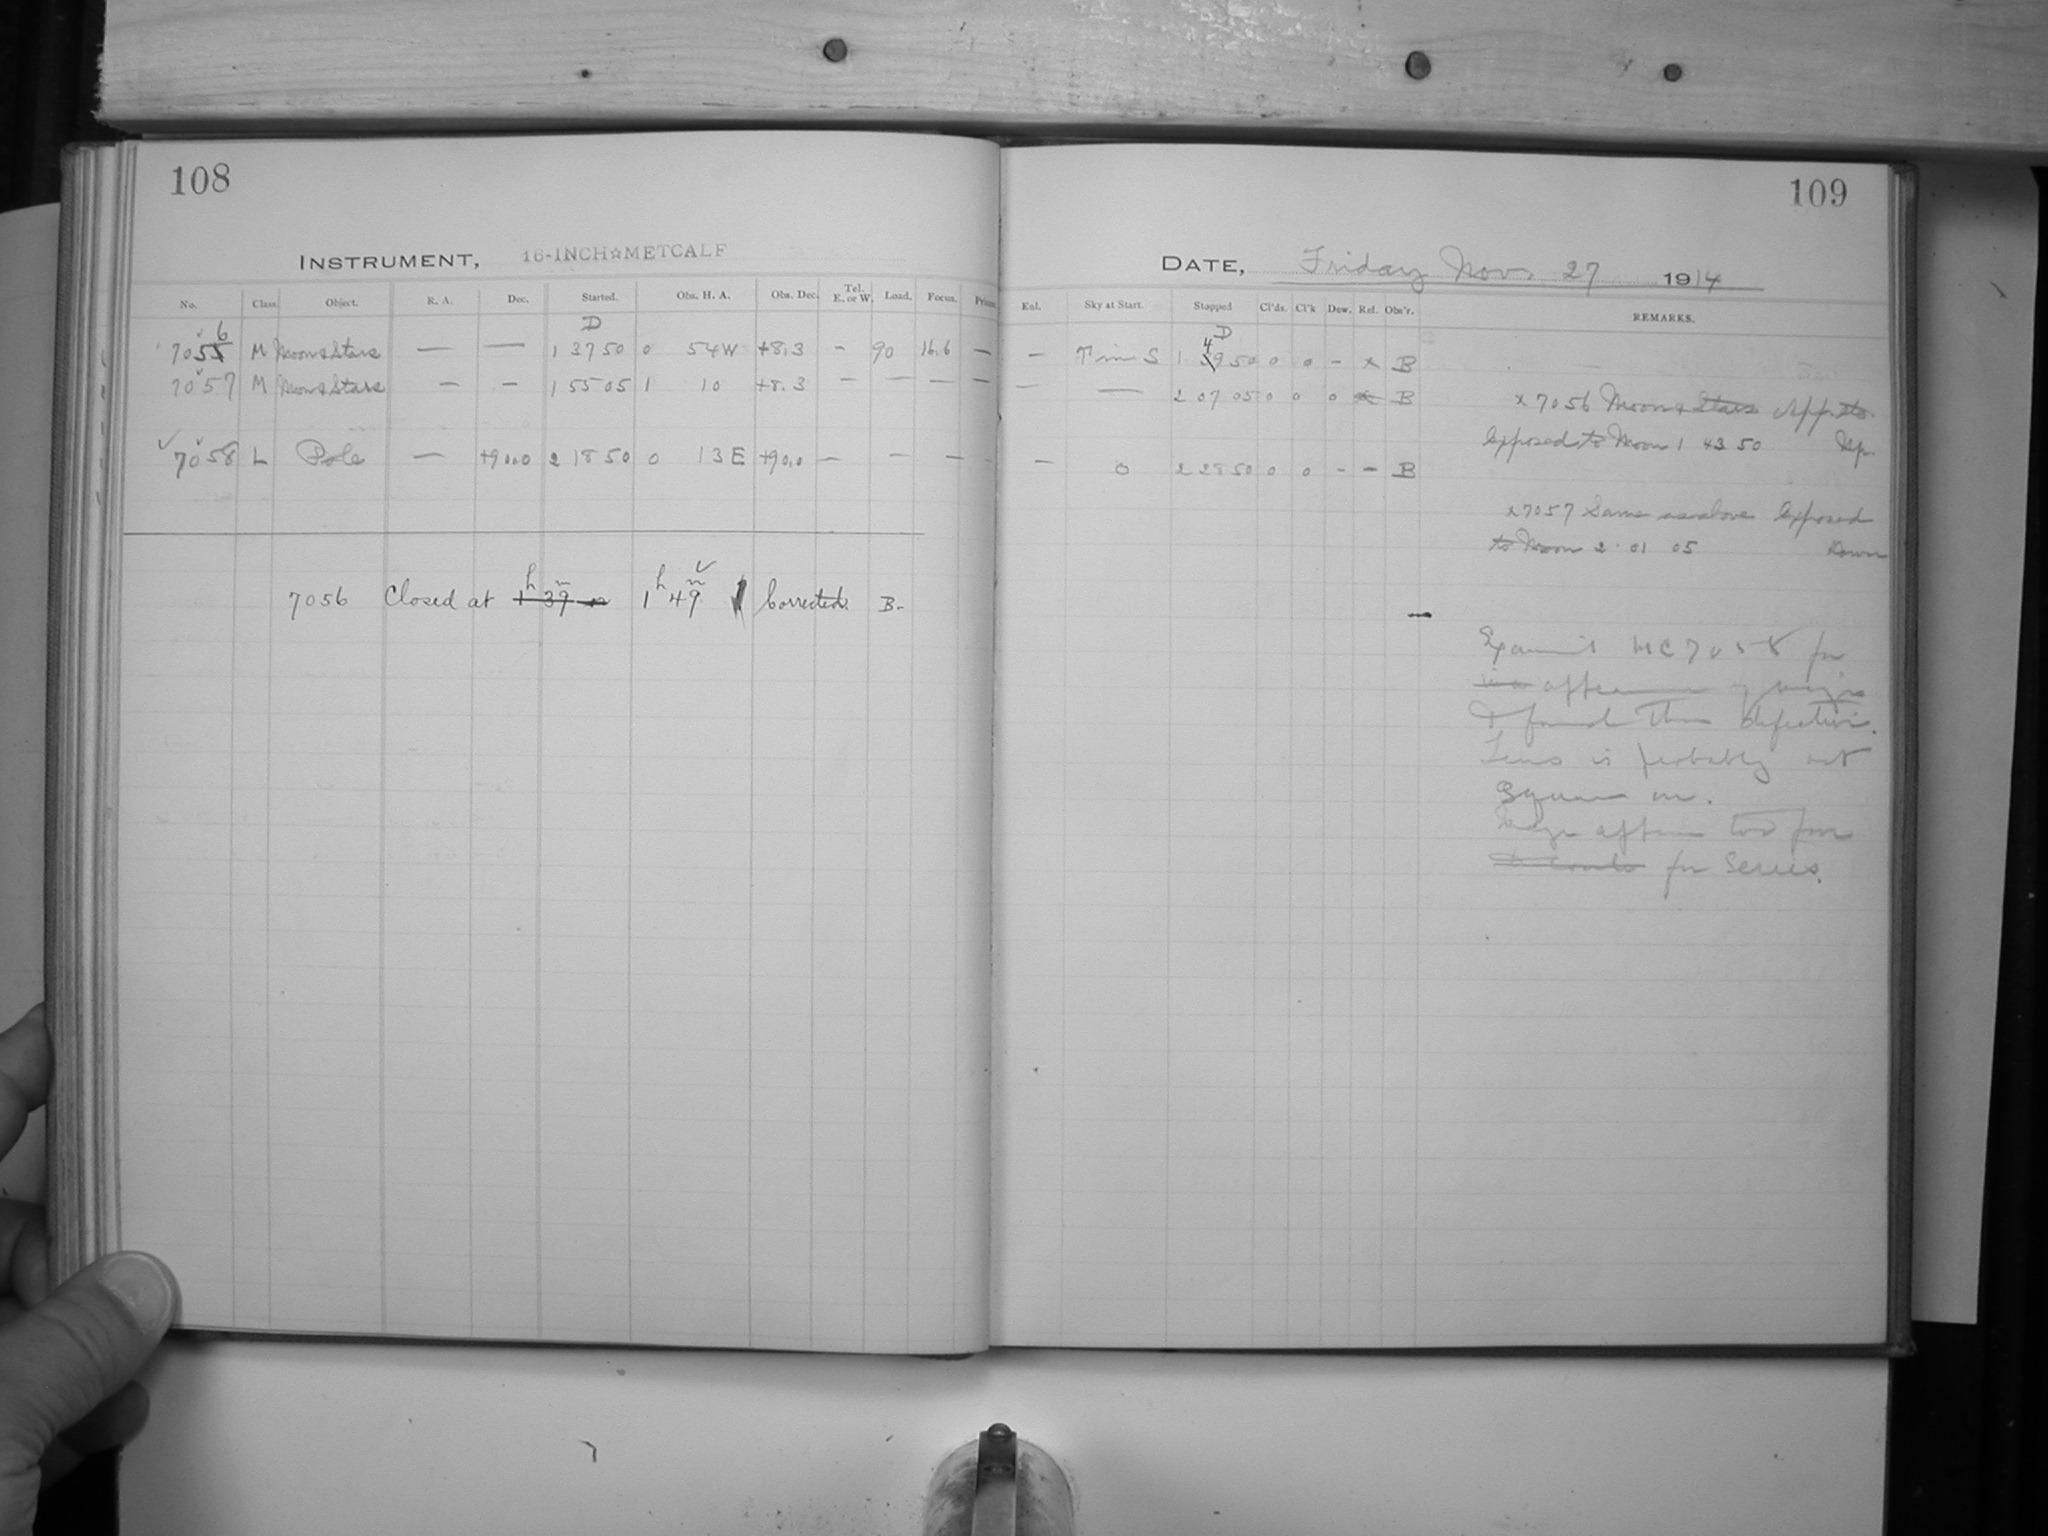 108
INSTRUMENT, 16-INCH☆METCALF
No. Class. Object. R. A. Dec. Started. Obs. H. A. Obs. Dec. Tel. E. or W. Load. Focus. Prism.
D
7056 M Moon & Stars — — 1 37 50 0 54 W +8.3 – 90 16.6 —
7057 M Moon & Stars — — 1 55 05 1 10 +8.3 — — — —
7058 L Pole — +90.0 2 18 50 0 13 E +90.0 — — —
7056 Closed at 1h 39m 1h 49m Corrected. B.
109
DATE, Friday Nov. 27 1914
Enl. Sky at Start. Stopped Cl'ds. Cl'k Dew. Rel. Obs'r. REMARKS.
D
— 1 49 50 0 0 – x B
— — 2 07 05 0 0 0 x B
— 0 2 28 50 0 0 – – B
x 7056 Moon & Stars App
Exposed to Moon 1 43 50 Up.
x 7057 Same as above Exposed
to Moon 2 01 05 Down
MC 7058 for
& found them defective.
Lens is probably not
square on.
too poor
for Series.